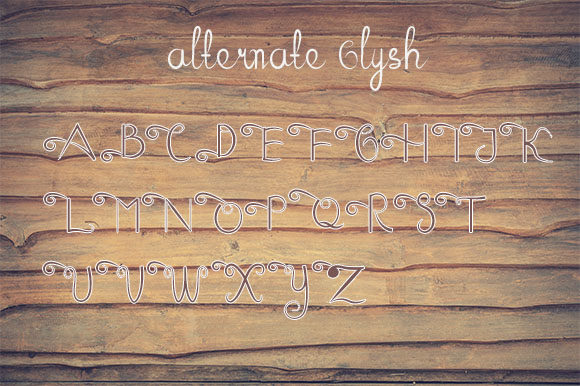 alternate Glysh
A B C D E F G H I J K
L M N O P Q R S T
U V W X Y Z